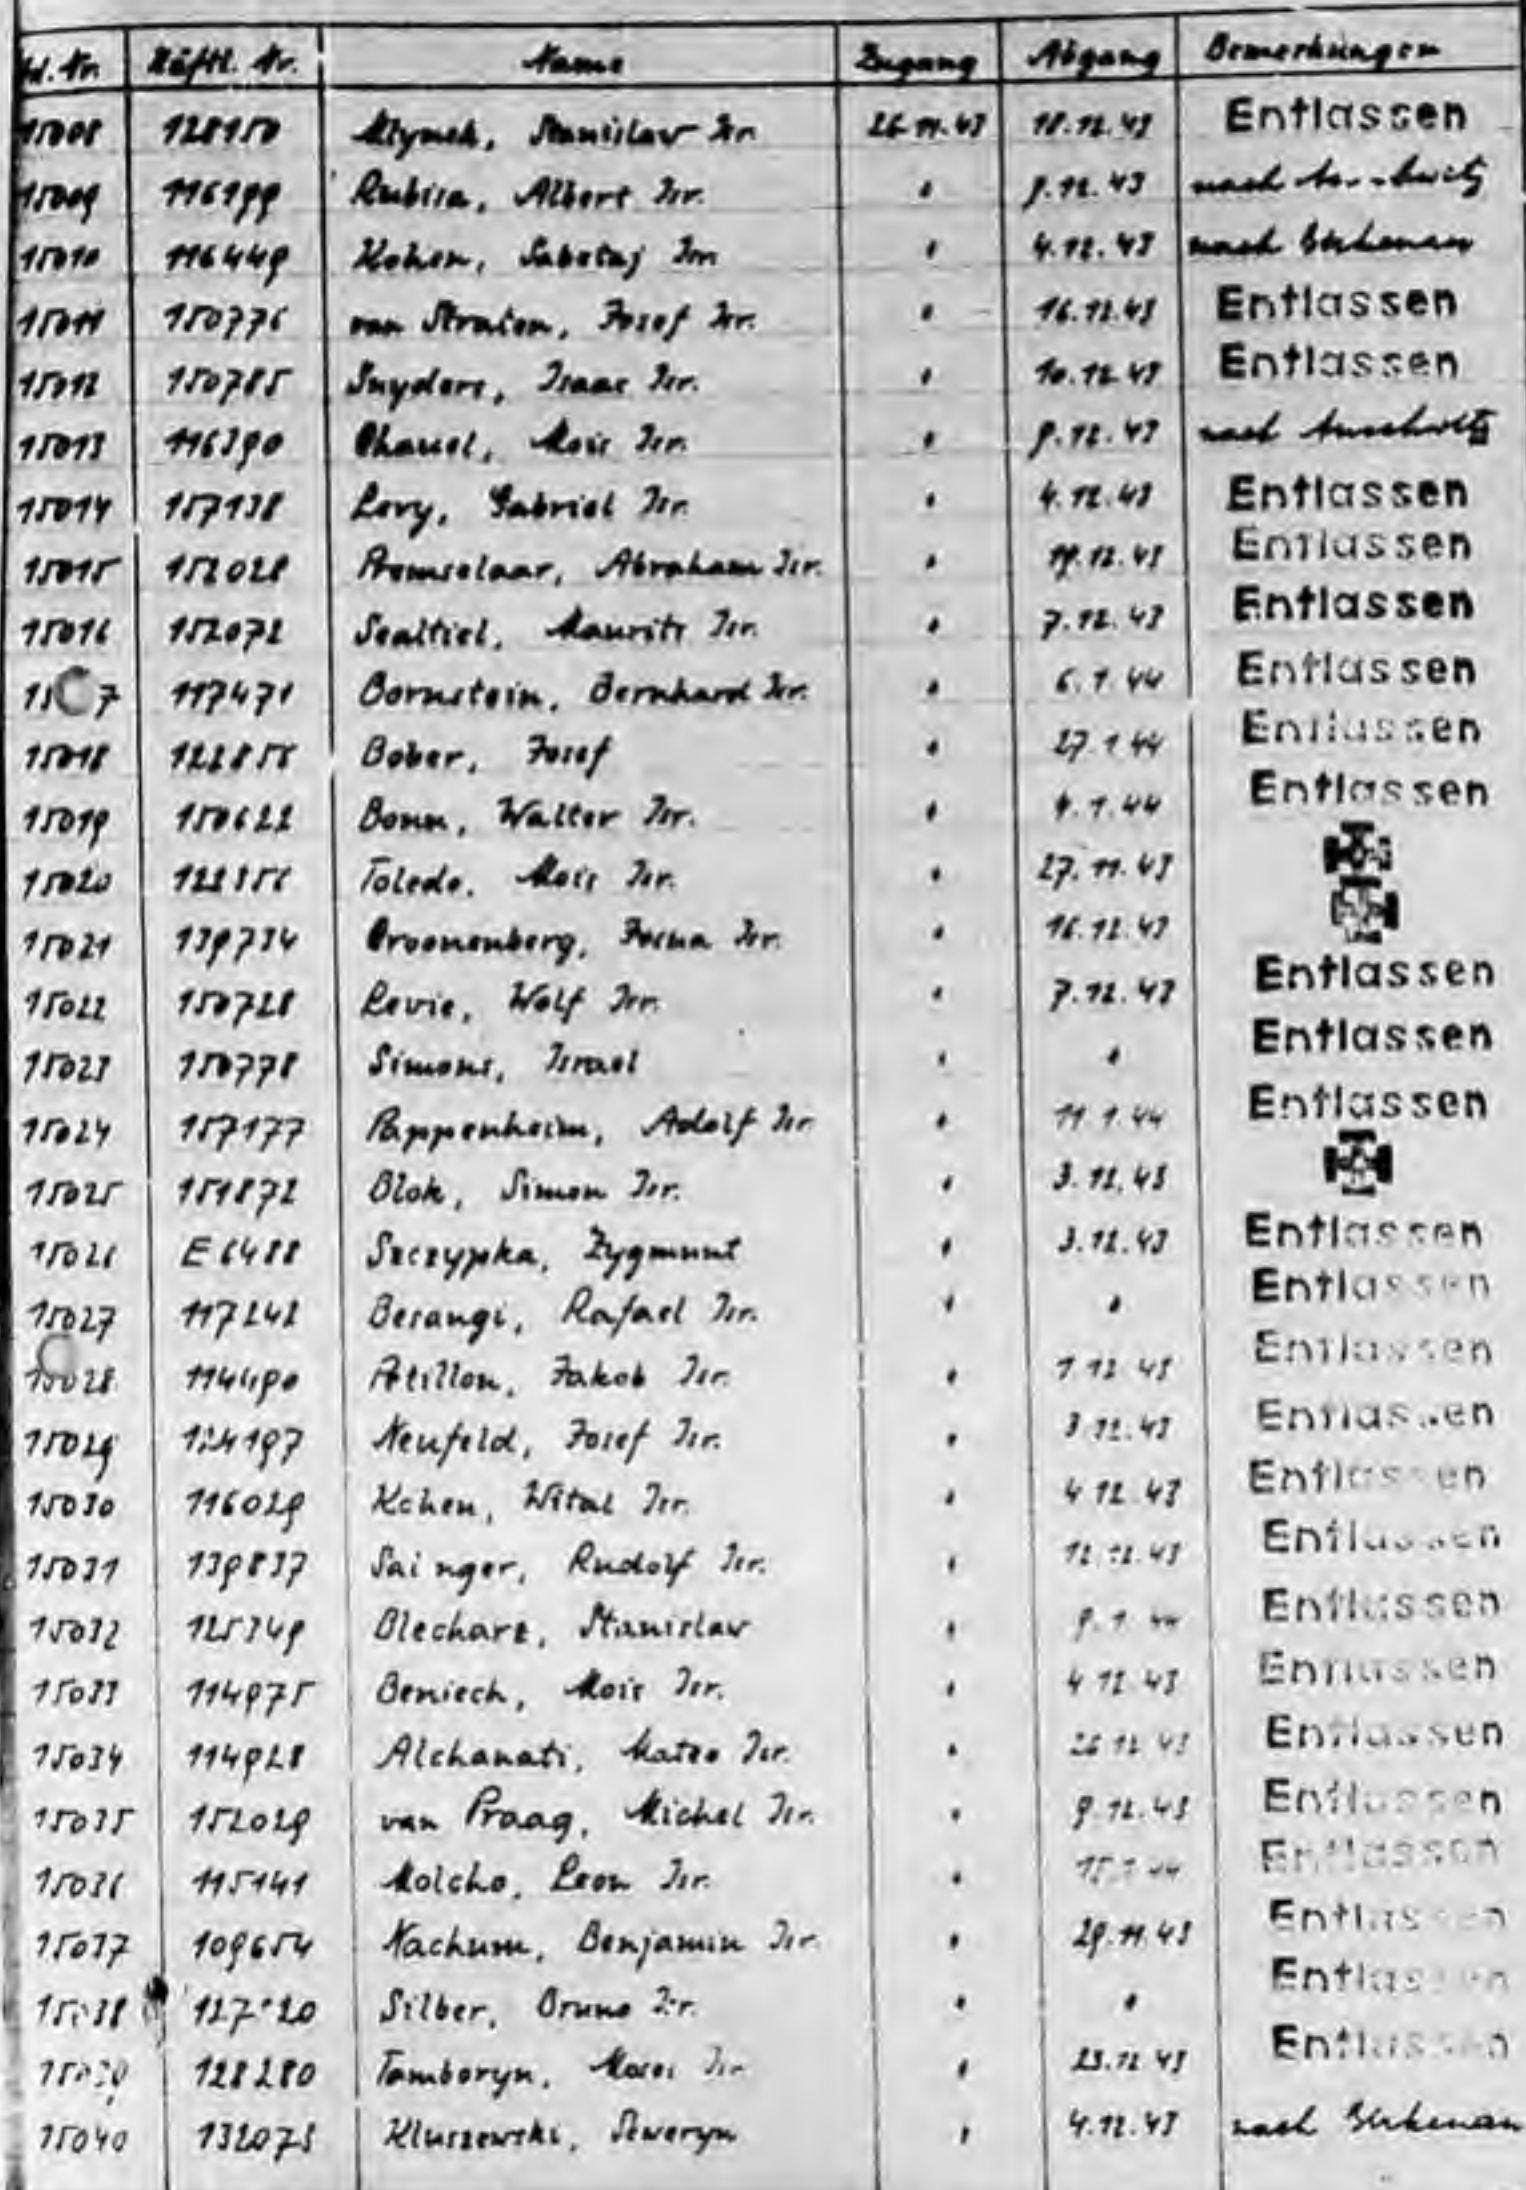 Lfd. Nr. Häftl. Nr. Name Zugang Abgang Bemerkungen
15008 128150 Mlynek, Stanislaw Isr. 26.11.43 18.12.43 Entlassen
15009 116199 Rubisa, Albert Isr. " 9.12.43 nach
15010 116449 Kohen, Sabetaj Isr. " 4.12.43 nach Birkenau
15011 150776 van Straten, Josef Isr. " 16.12.43 Entlassen
15012 150785 Snyders, Isaac Isr. " 10.12.43 Entlassen
15013 116390 Isr. " 9.12.43 nach Auschwitz
15014 157138 Levy, Gabriel Isr. " 4.12.43 Entlassen
15015 152028 Premselaar, Abraham Isr. " 19.12.43 Entlassen
15016 152072 Sealtiel, Maurits Isr. " 7.12.43 Entlassen
117471 Bornstein, Bernhard Isr. " 6.1.44 Entlassen
15018 122855 Bober, Josef " 27.1.44 Entlassen
15019 150622 Bonn, Walter Isr. " 4.1.44 Entlassen
15020 122356 Toledo, Mois Isr. " 27.11.43
15021 139734 Croonenberg, Isr. " 16.12.43
15022 150728 Levie, Wolf Isr. " 7.12.43 Entlassen
15023 150778 Simons, Israel " " Entlassen
15024 157177 Pappenheim, Adolf Isr. " 11.1.44 Entlassen
15025 151872 Blok, Simon Isr. " 3.12.43
15026 E6488 Szczypka, Zygmunt " 3.12.43 Entlassen
15027 117242 Besangi, Rafael Isr. " " Entlassen
15028 114490 Atillon, Jakob Isr. " 1.12.43 Entlassen
15029 124197 Neufeld, Josef Isr. " 3.12.43 Entlassen
15030 116029 Kohen, Wital Isr. " 4.12.43 Entlassen
15031 139837 Sainger, Rudolf Isr. " 12.12.43 Entlassen
15032 125349 Blecharz, Stanislaw " 9.1.44 Entlassen
15033 114975 Beniech, Mois Isr. " 4.12.43 Entlassen
15034 114928 Alchanati, Mateo Isr. " 26.12.43 Entlassen
15035 152029 van Praag, Michel Isr. " 9.12.43 Entlassen
15036 115141 Molcho, Leon Isr. " Entlassen
15037 109654 Nachum, Benjamin Isr. " 29.11.43 Entlassen
15038 Silber, Bruno Isr. " " Entlassen
15039 128280 Tamboryn, Isr. " 23.12.43 Entlassen
15040 132073 Kluszewski, Seweryn " 4.12.43 nach Birkenau